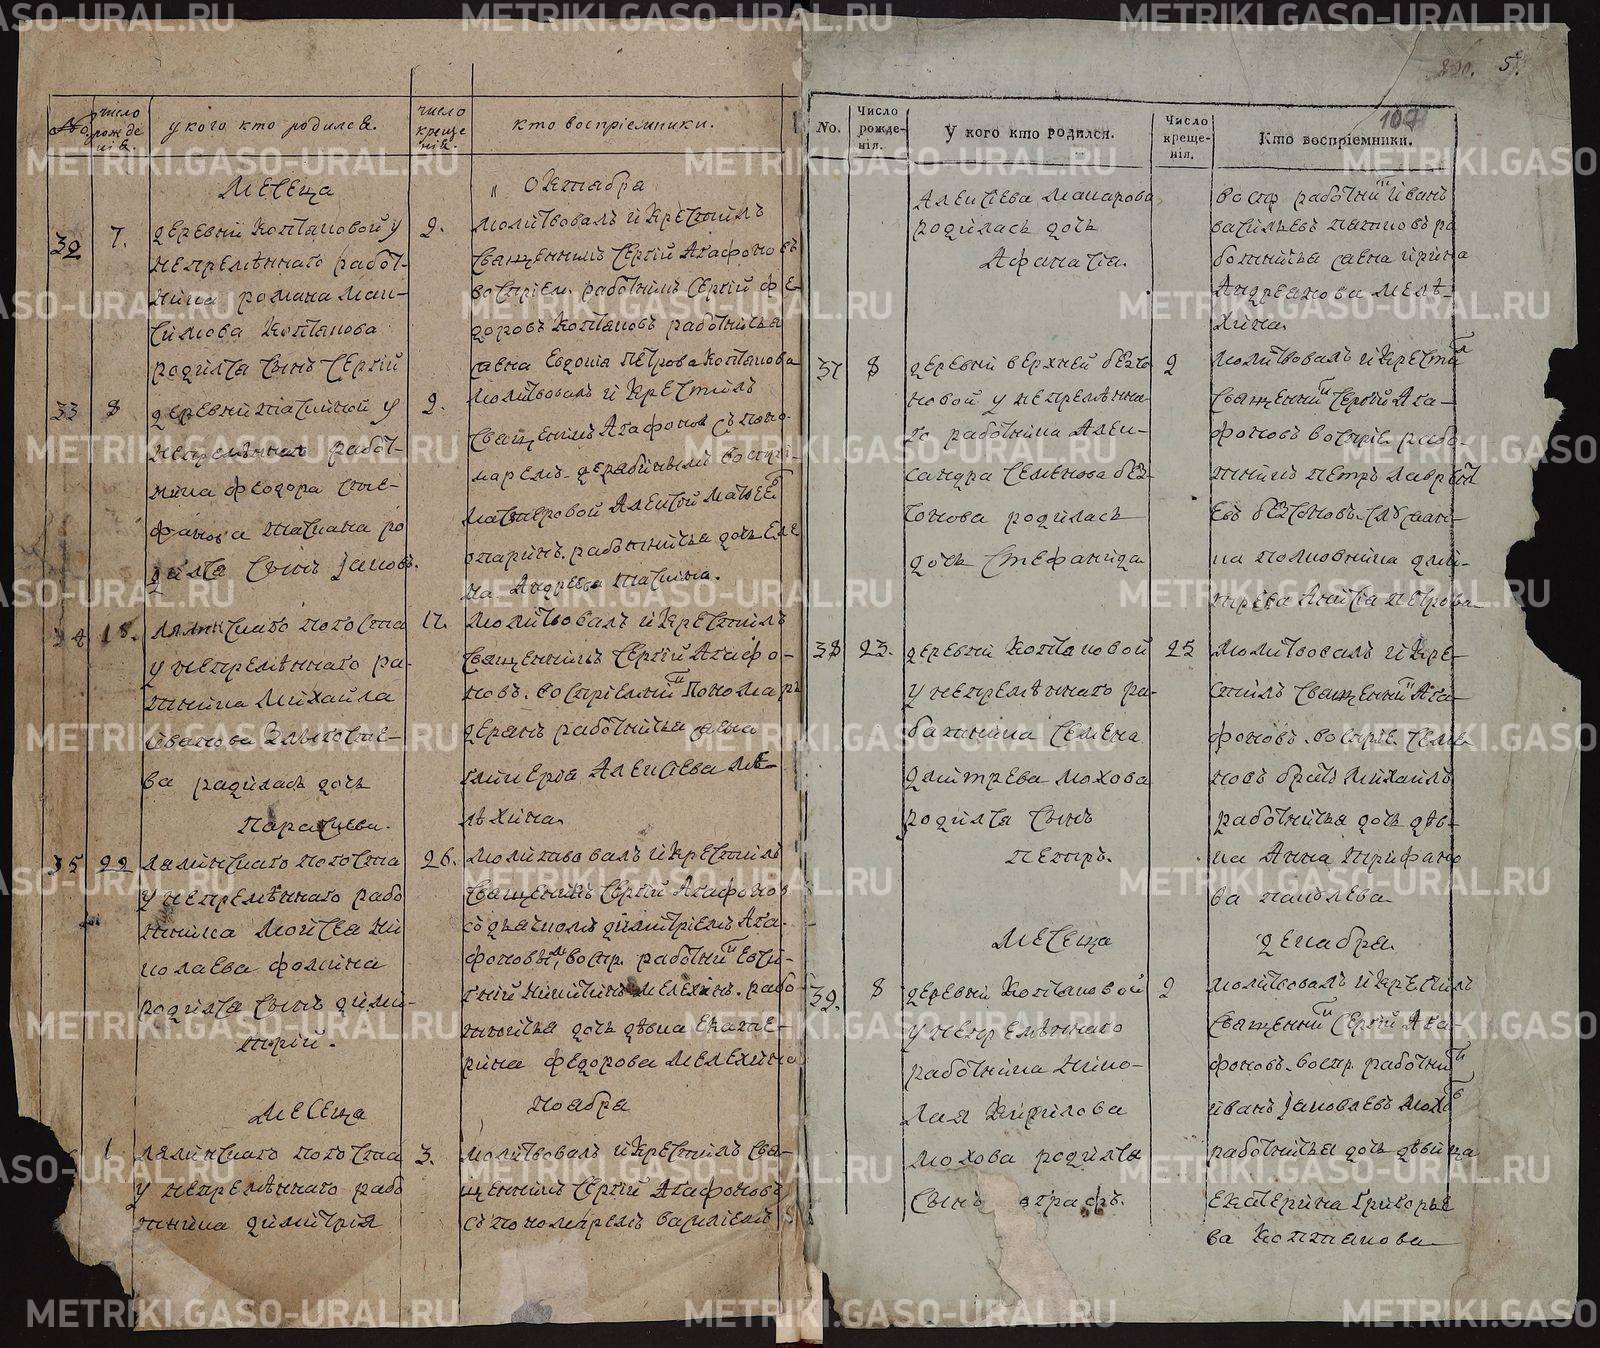 No.
число рожденiя.
у кого кто родился.
число крещенiя.
кто воспрiемники.
Месеца
" октабра
32
7.
деревни Коптяковой у
непремѣннаго работ-
ника романа Мак-
симова Коптякова
родился сынъ Сергiй
9.
молитвовалъ и крестилъ
священникъ Сергiй Агафоновъ
воспрiем. работникъ Сергiй Фе-
доровъ Коптяковъ работничья
жена Евдокiя Петрова Коптякова
33
8
у
непремѣннаго работ-
ника феодора Сте-
фанова
родился сынъ Iаковъ.
9.
молитвовалъ и крестилъ
священникъ Агафоновъ с поно-
маремъ
Алексей
работничья дочь Еле
на Андреева
34
18.
лялинскаго погоста
у непремѣннаго ра-
тника Михайла
Иванова
ва родилась дочь
Параскева.
молитвовалъ и крестилъ
священникъ Сергiй Агафо-
новъ. воспрiемники пономарь
работничья жена
Гликерiя Алексеева Ме-
лѣхина
35
22
лялинскаго погоста
у непремѣннаго рабо
тника Моисея Ни
колаева Фомина
родился сынъ Дими-
трiй.
26.
молитвовалъ и крестилъ
священникъ Сергiй Агафонов
съ дьякомъ Димитрiемъ Ага-
фоновымъ, воспр. работник Евги-
нiй Никитинъ Мелехинъ. рабо
тничья дочь дѣвка Екате-
рина Федорова Мелехина
Месеца
ноабра
1
лялинскаго погоста
у непремѣннаго рабо
тника Димитрiя
3.
молитвовалъ и крестилъ свя-
щенникъ Сергiй Агафоновъ
съ пономаремъ Василiемъ
107
5.
No.
Число рожде-нiя.
У кого кто родился.
Число креще-нiя.
Кто воспрiемники.
Алексiева Макарова
родилась дочь
Афанасiа.
воспр работник Иванъ
васильевъ ра
ботничья жена Ирина
Андреанова Меле-
хина
37
8
деревни верхней Безсо
новой у непремѣнна
го работника Алек-
сандра Семенова Без-
сонова родилась
дочь Стефанида
9
молитвовалъ и крестил
священник Сергiй Ага-
фоновъ воспрiе. рабо-
тникъ петръ лаврент
евъ безсоновъ
на полковника дми-
трева Анисiа Петрова
38
23.
деревни Коптяковой
у непремѣннаго ра-
ботника Семена
Дмитрева Мохова
родился сынъ
петръ.
25
молитвовалъ и кре-
стилъ священник Ага-
фоновъ. воспрiе. Семе
новъ братъ Михаилъ
работничья дочь дѣв-
ка Анна Трифоно
ва
Месеца
декабра.
39.
8
деревни Коптяковой
у непремѣннаго
работника Нико-
лая Кирилова
Мохова родился
сынъ
9
молитвовалъ и крестилъ
священник Сергiй Ага-
фоновъ. воспр. работник
Иванъ Iаковлевъ Мохов
работничья дочь дѣвица
Екатерина Григорье
ва Коптякова
METRIKI.GASO-URAL.RU